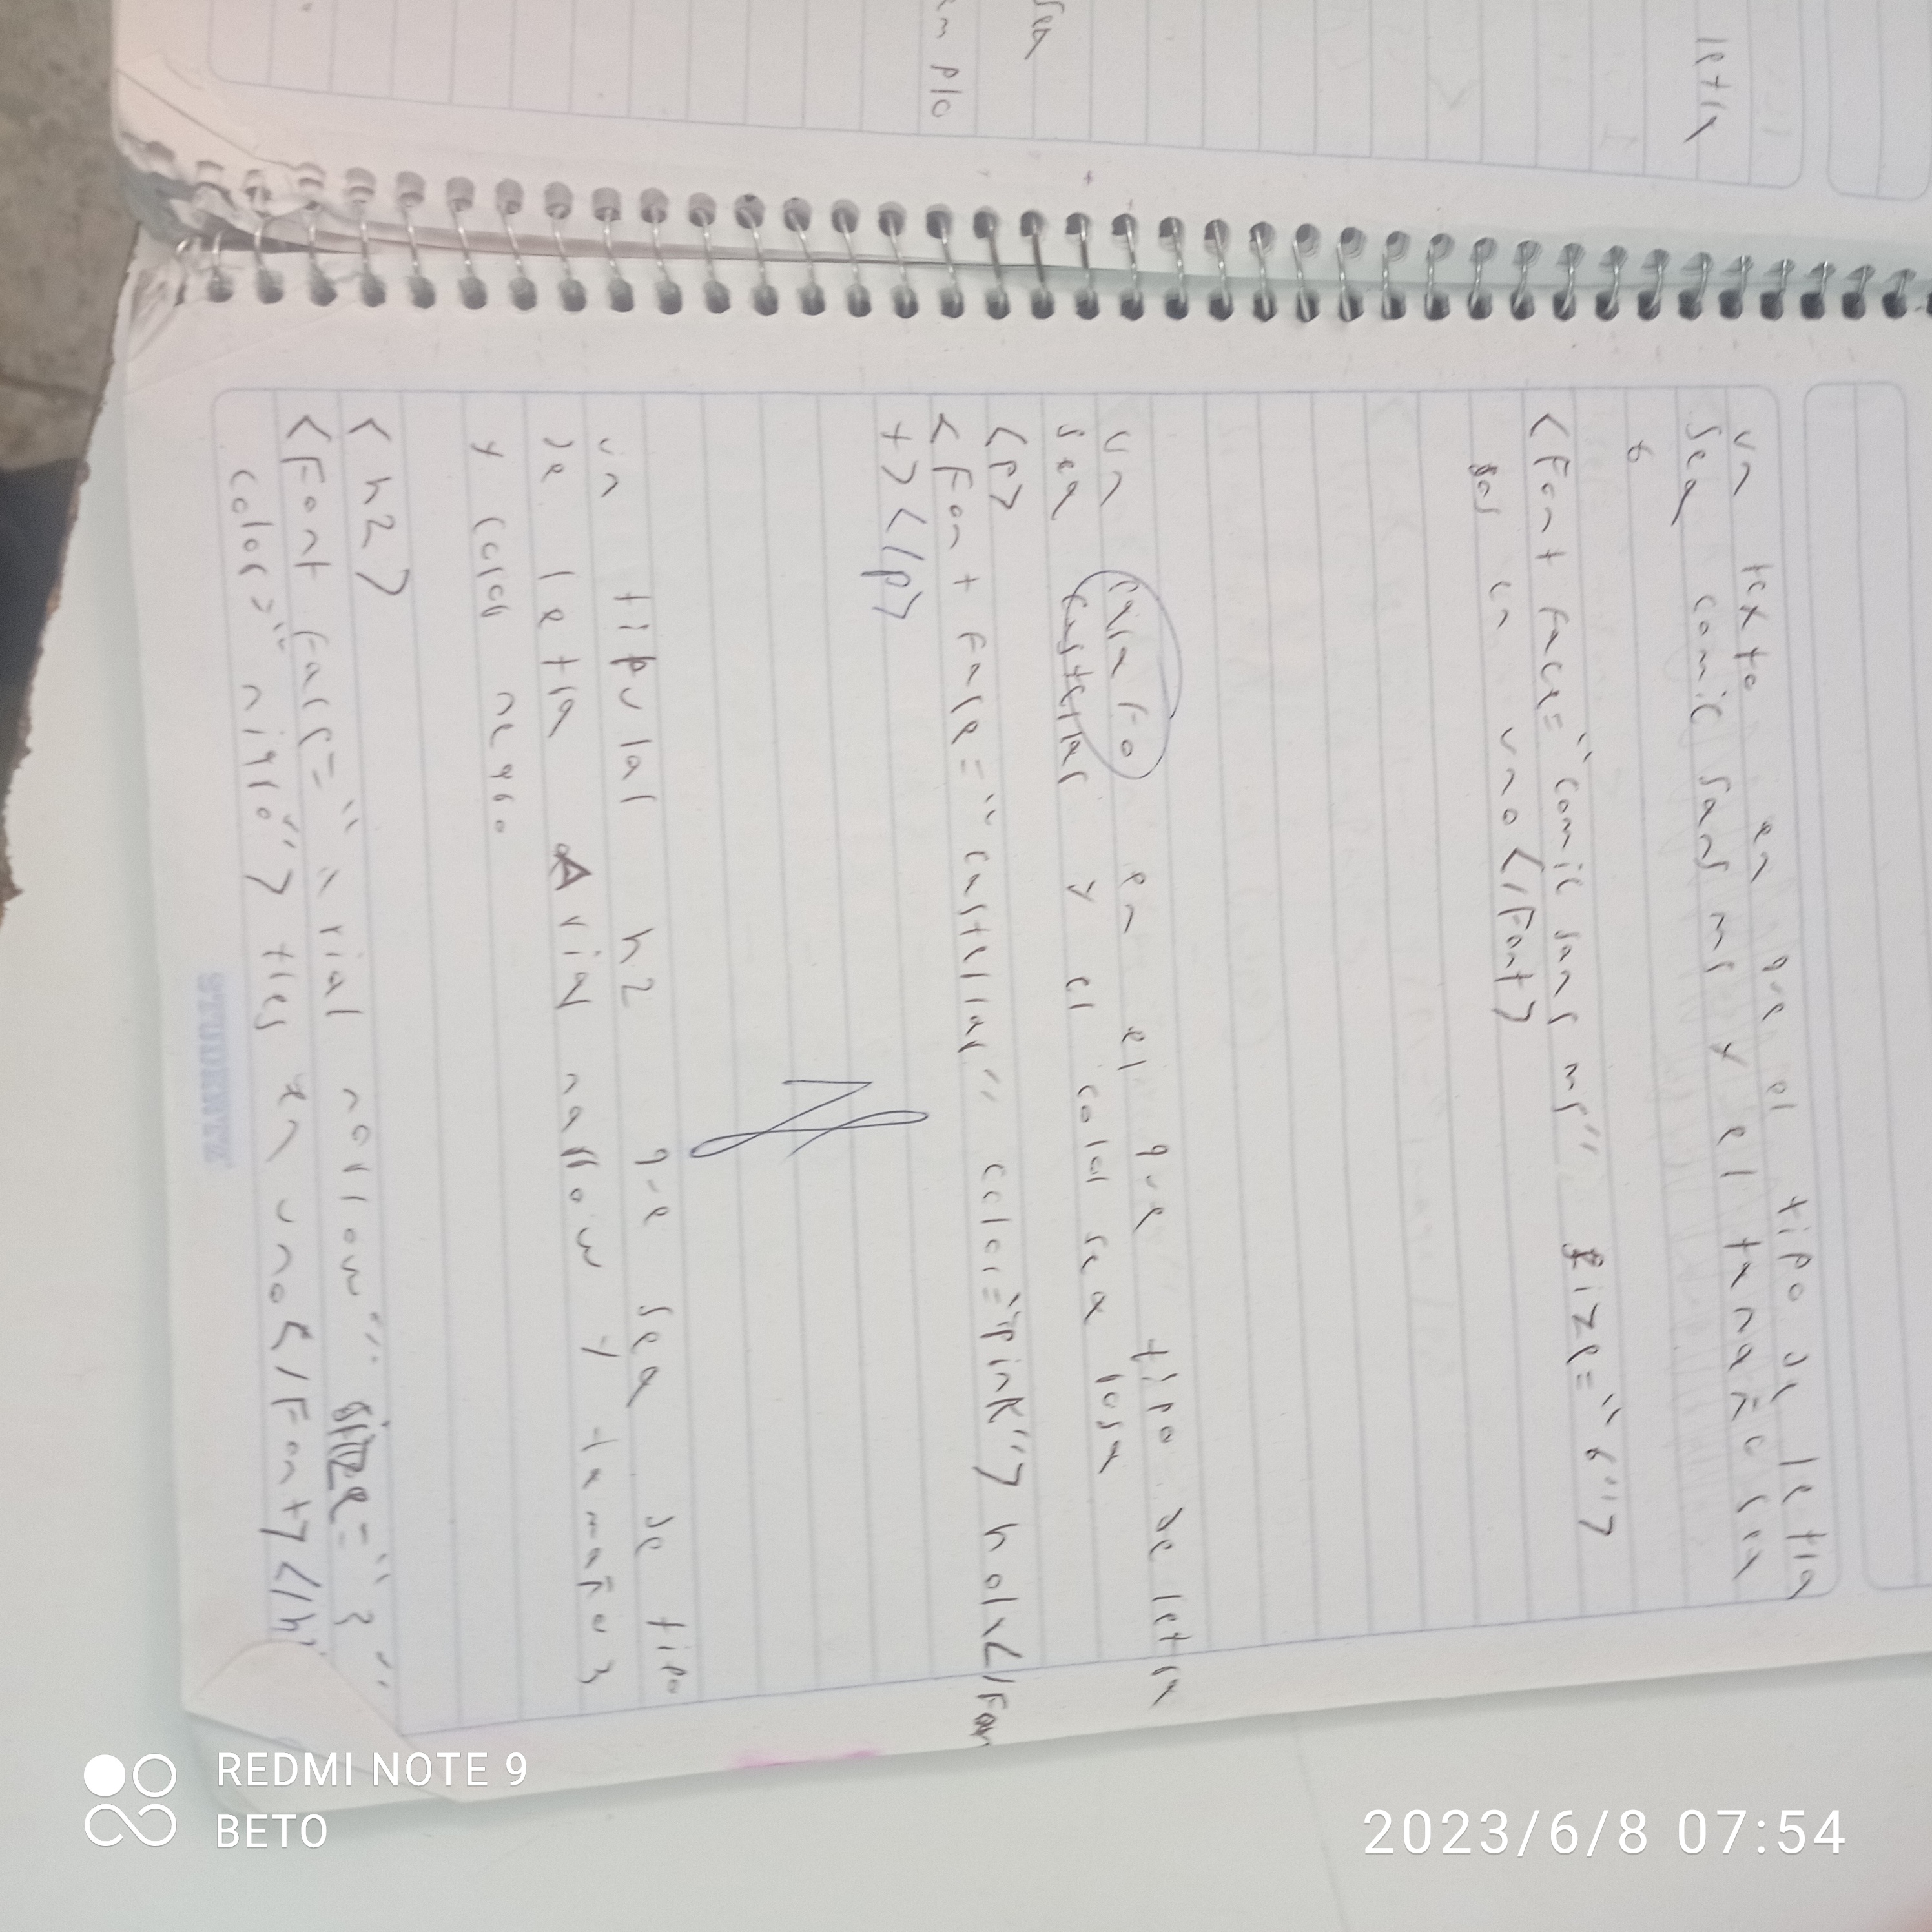 letra
sea
em plo
un texto en que el tipo de letra
sea comic sans ms y el tamaño sea
6
<Font face="comic sans ms" size="6">
dos en uno</Font>
un parrafo en el que tipo de letra
sea castellar y el color sea rosa
<p>
<Font face="castellar" color="pink">hola</Fon
t></p>
un tipular h2 que sea de tipo
de letra Arial narrow y tamaño 3
y color negro
<h2>
<Font face="arial norrow" size="3"
color="nigro">tres en uno</Font></h
STUDENTEZ
REDMI NOTE 9
BETO
2023/6/8 07:54